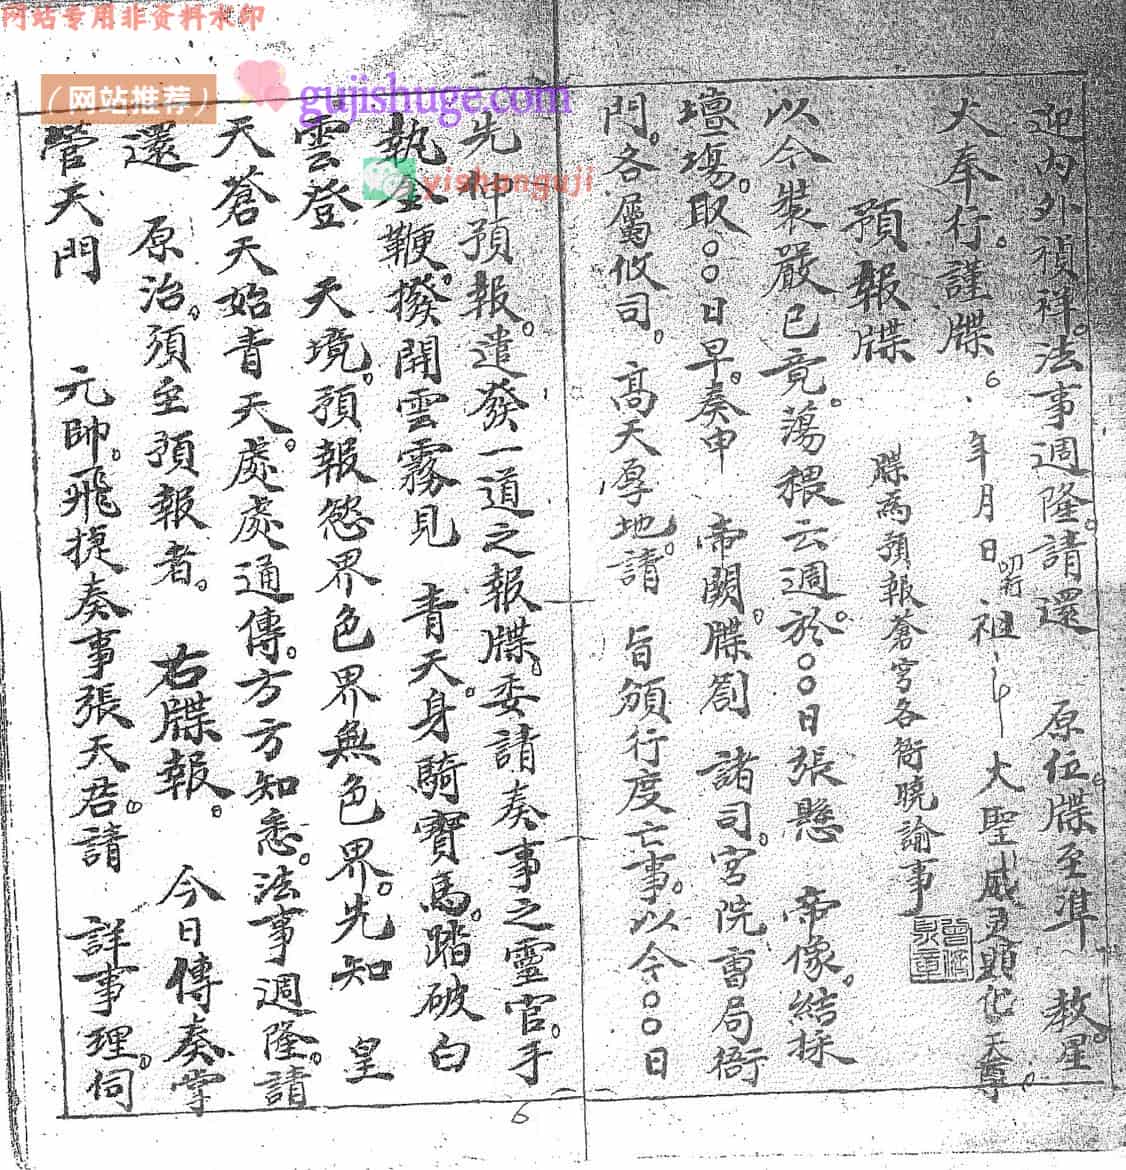 网站专用非资料水印
（网站推荐）
gujishuge.com
yishunguji
迎內外禎祥。法事週隆。請還 原位。牒至準 教。星
大奉行。謹牒。年月日 祖 大聖威灵顕化天尊。
預報牒 牒為預報蒼穹各衙曉諭事
以今裝嚴已竟。蕩穢云週。於○○日張懸 帝像。結採
壇塲。取○○日早。奏申 帝闕。牒劄 諸司。宮院曹局衙
門。各屬攸司。高天厚地。請 旨頒行度亡事。以今○○日
先伸預報。遣發一道之報牒。委請奏事之靈官。手
執金鞭。撥開雲霧見 青天。身騎寶馬。踏破白
雲登 天境。預報慾界色界無色界。先知 皇
天蒼天始青天。處處通傳。方方知悉。法事週隆。請
還 原治。須至預報者。 右牒報。 今日傳奏掌
管天門 元帥。飛捷奏事張天君。請 詳事理。伺
6